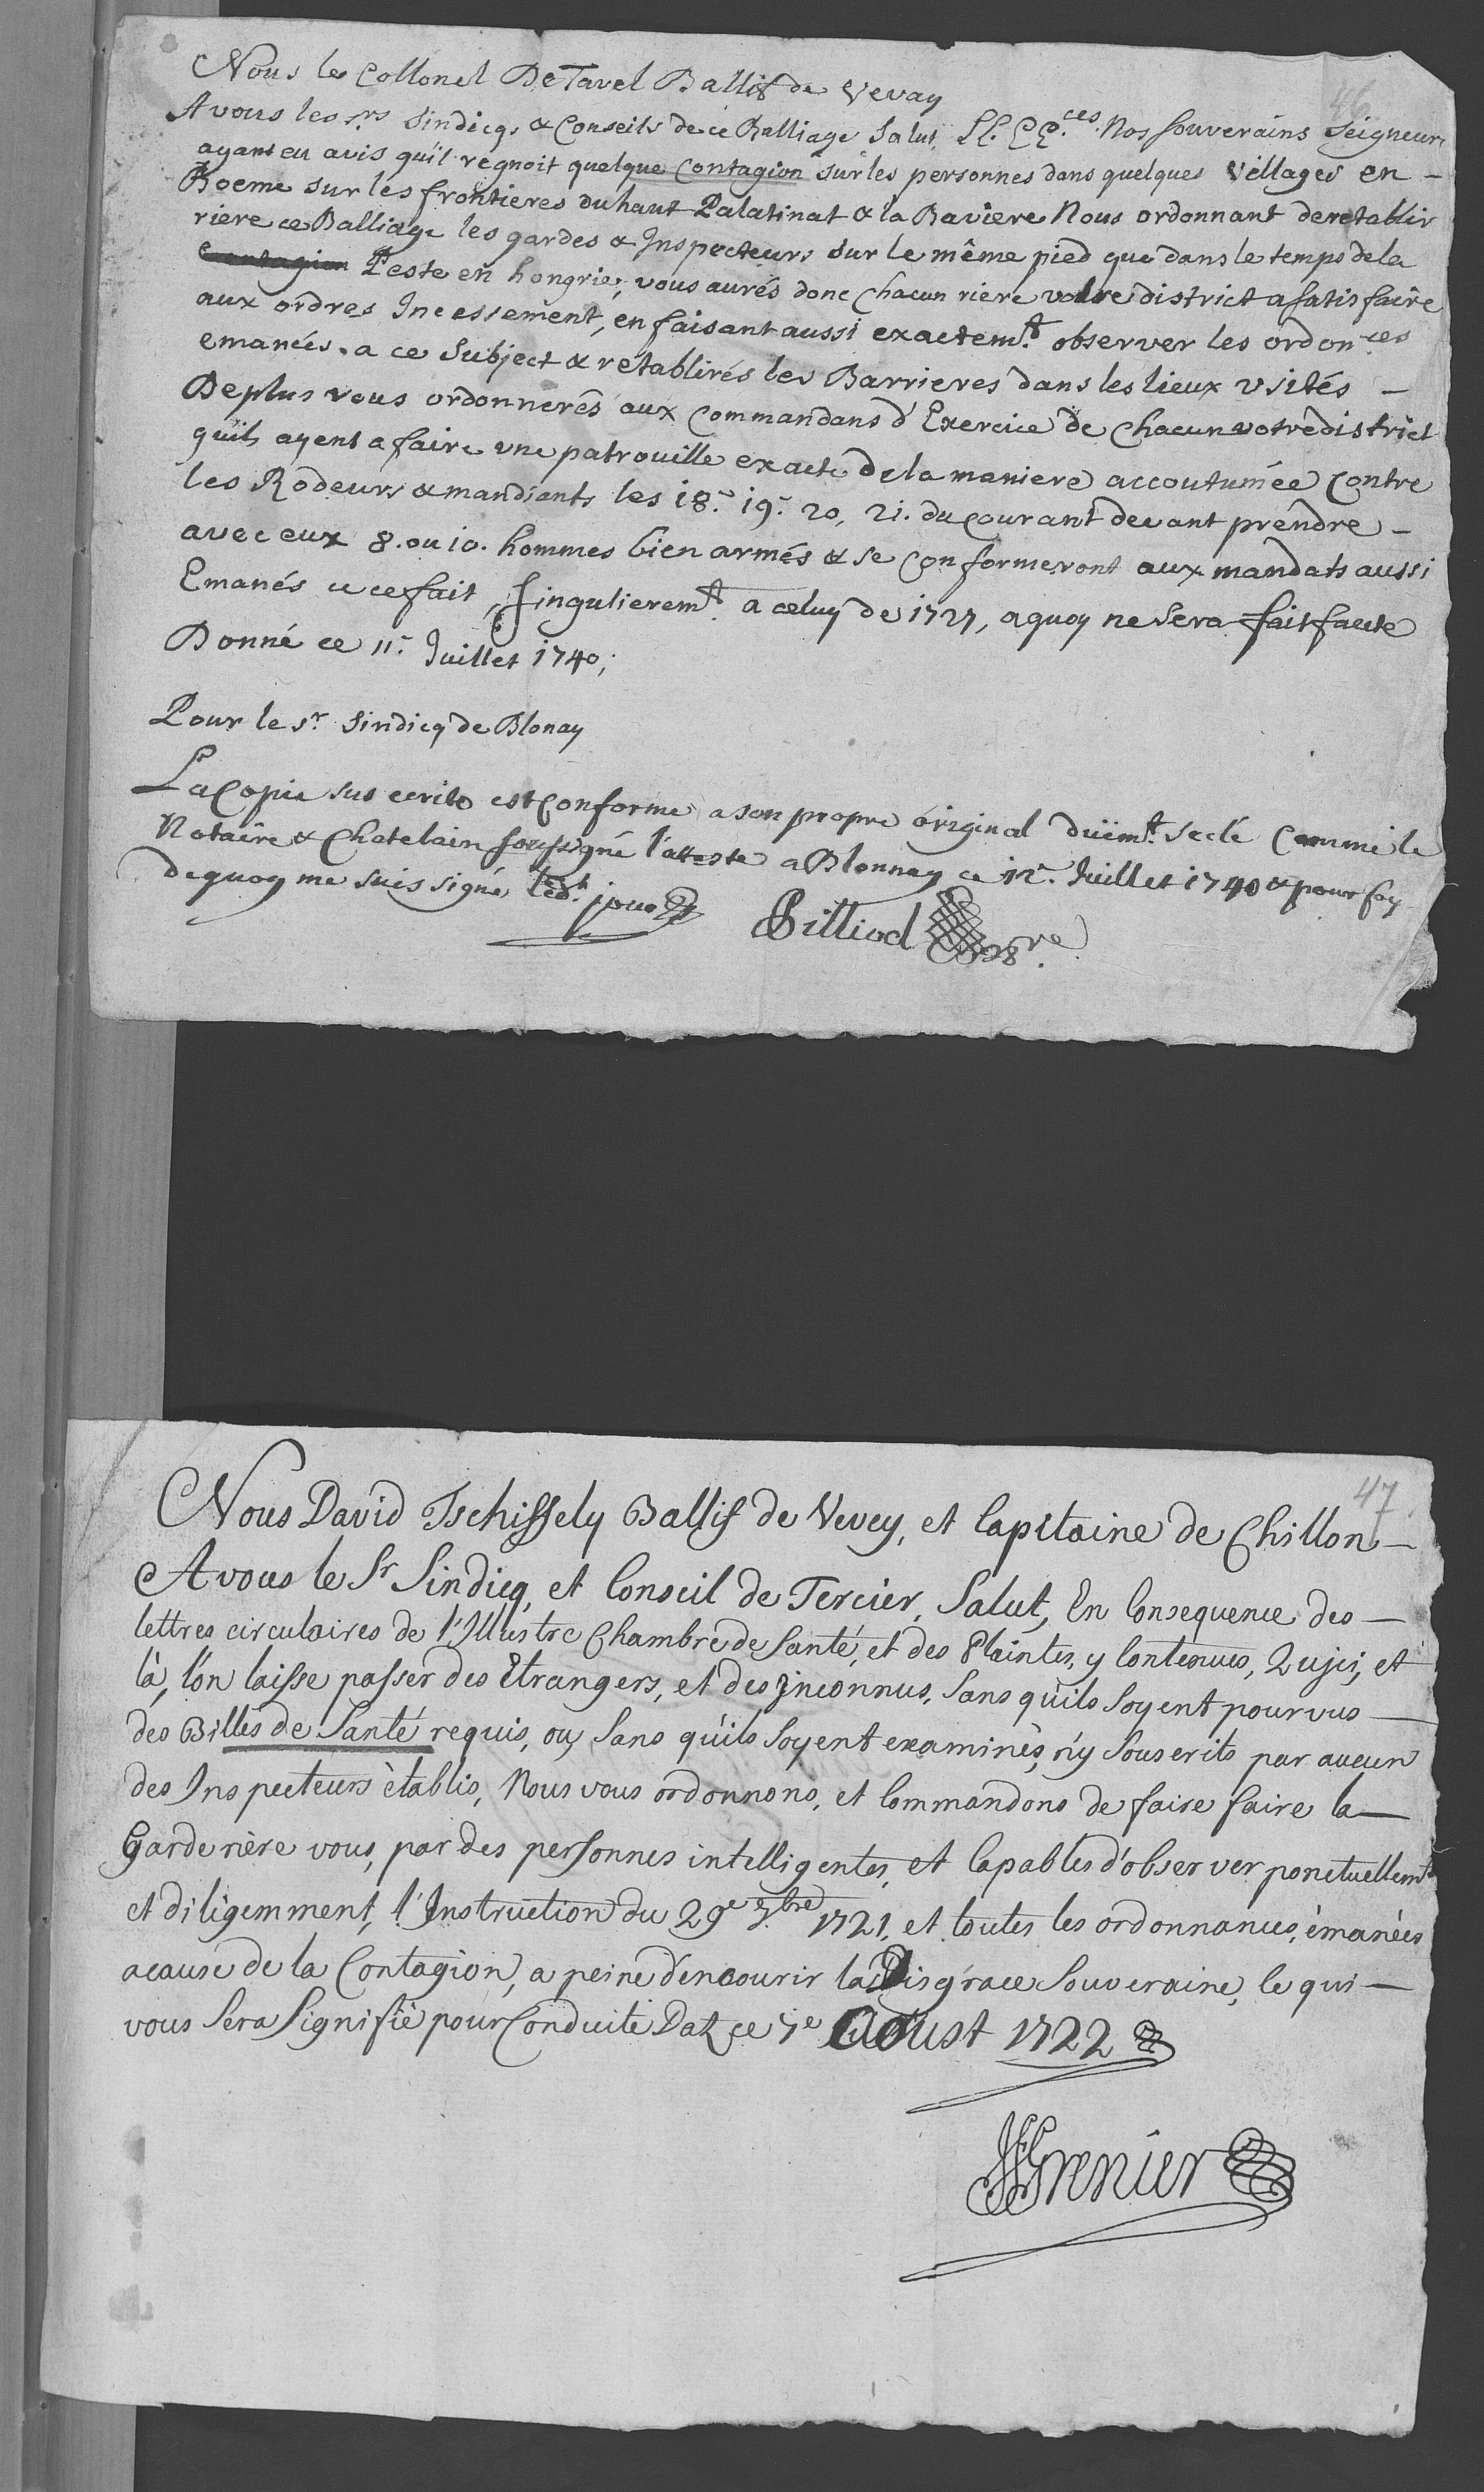 46
Nous le Collonel De Tavel Ballif de Vevay
A vous les srs Sindicqs & Conseils de ce Balliage Salut, LL. EE.ces Nos souverains Seigneurs
ayant eu avis qu'il regnoit quelque Contagion sur les personnes dans quelques Villages en -
Boeme sur les frontieres du haut Palatinat & la Baviere Nous ordonnant de retablir
riere ce Balliage les gardes & Inspecteurs sur le même pied que dans le temps de la
Contagion Peste en hongrie, vous aurés donc Chacun riere votre district a satisfaire
aux ordres Incessement, en faisant aussi exactemt. observer les ordonces
emanées a ce Subject & retablirés les Barrieres dans les lieux usités -
De plus vous ordonnerés aux Commandans d'Exercice de Chacun votre district
quils ayent a faire une patrouille exacte de la maniere accoutumée Contre
les Rodeurs & mandiants les 18. 19. 20, 21. du Courant devant prendre -
avec eux 8. ou 10. hommes bien armés & se Conformeront aux mandats aussi
Emanés a ce fait, singulieremt. a celuy de 1727, a quoy ne sera fait faute
Donné ce 11. Juillet 1740,
Pour le sr. Sindicq de Blonay
La Copie sus ecrite est Conforme a son propre original düemt. seelé Comme le
Notaire & Chatelain soussigné l'atteste a Blonnay ce 12. Juillet 1740 & pour foy
de quoy me suis signé led.t jour
Pilliod
47
Nous David Tschiffely Ballif de Vevey, et Capitaine de Chillon -
A vous le Sr Sindicq, et Conseil de Tercier, Salut, En Consequence des -
lettres circulaires de l'Illustre Chambre de Santé, et des Plaintes, y Contenues, Qujci, et
là, l'on laisse passer des Etrangers, et des jnconnus, sans qu'ils soyent pourvus -
des Billés de Santé requis, ou sans qu'ils soyent examinés, n'y souscrits par aucun
des Inspecteurs établis, Nous vous ordonnons, et Commandons de faire faire la -
Garde rière vous, par des personnes intelligentes, et Capables d'observer ponctuellemt
et diligemment, l'Instruction du 29e 7bre 1721, et toutes les ordonnances, émanées
acause de la Contagion, a peine d'encourir la Disgrace Souveraine, Ce qui -
vous sera signifié pour Conduite Dat ce 7e Aoust 1722
Grenier